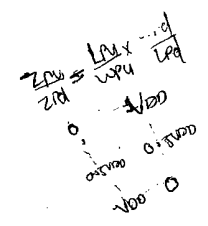 Zpu/Zpd = Lpu/Wpu × ...d/Lpd
VDD
0
0.5VDD
0.5VDD
VDD 0